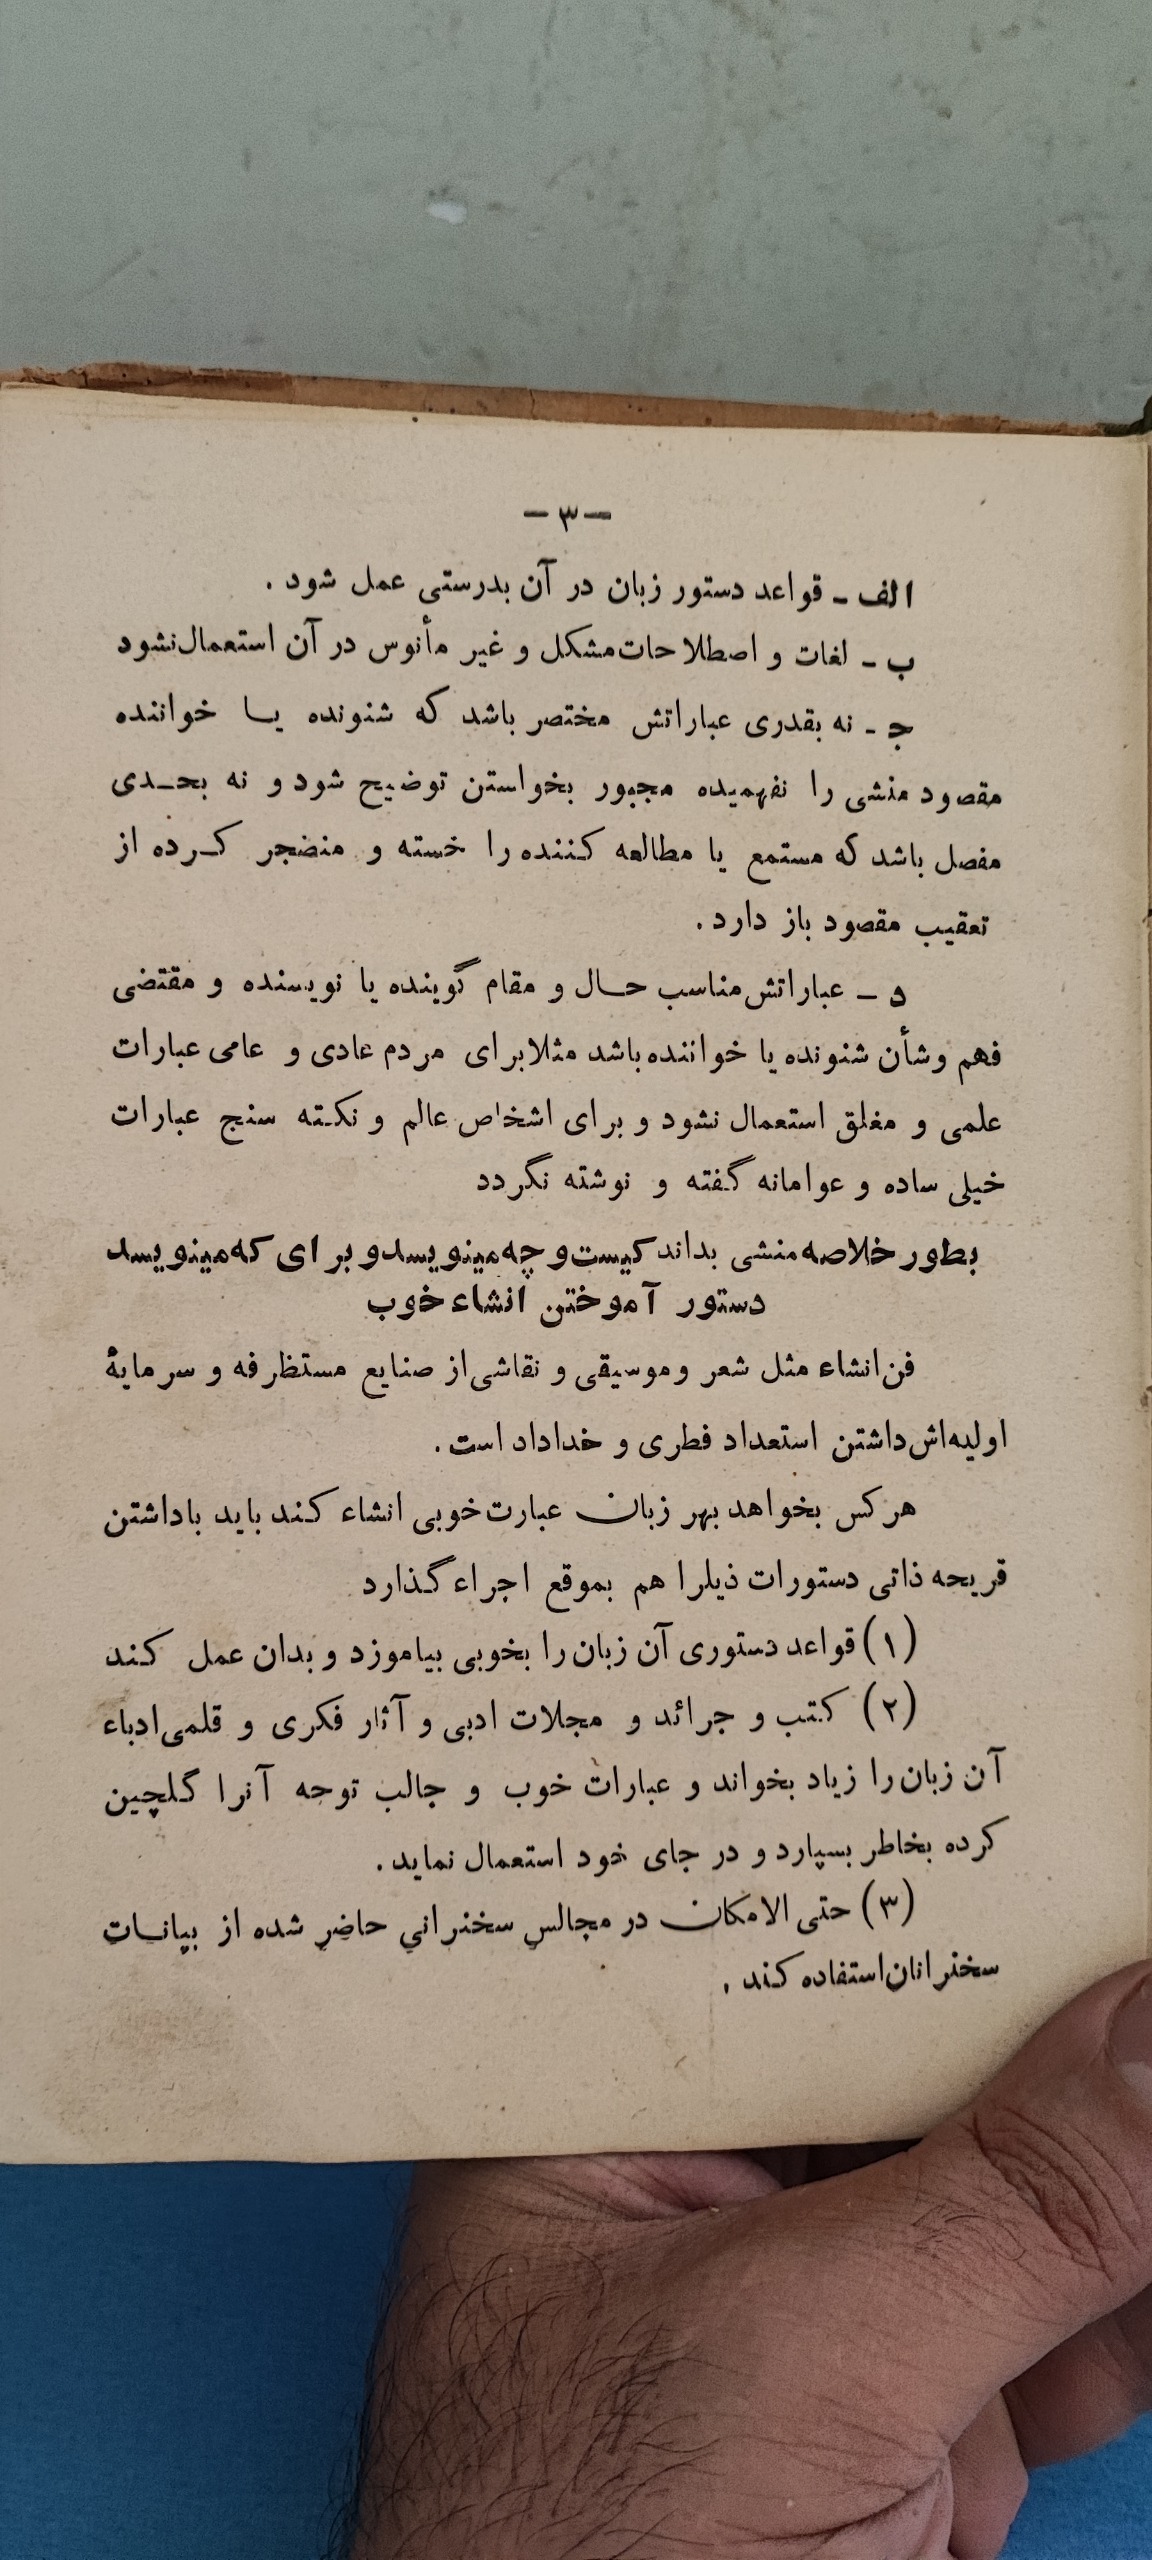 -۳-
الف - قواعد دستور زبان در آن بدرستی عمل شود .
ب - لغات و اصطلاحات مشکل و غیر مأنوس در آن استعمال نشود
ج - نه بقدری عباراتش مختصر باشد که شنونده یا خواننده
مقصود منشی را نفهمیده مجبور بخواستن توضیح شود و نه بحدی
مفصل باشد که مستمع یا مطالعه کننده را خسته و منضجر کرده از
تعقیب مقصود باز دارد .
د - عباراتش مناسب حال و مقام گوینده یا نویسنده و مقتضی
فهم و شأن شنونده یا خواننده باشد مثلا برای مردم عادی و عامی عبارات
علمی و مغلق استعمال نشود و برای اشخاص عالم و نکته سنج عبارات
خیلی ساده و عوامانه گفته و نوشته نگردد
بطور خلاصه منشی بداند کیست و چه مینویسد و برای که مینویسد
دستور آموختن انشاء خوب
فن انشاء مثل شعر و موسیقی و نقاشی از صنایع مستظرفه و سرمایهٔ
اولیه اش داشتن استعداد فطری و خداداد است .
هر کس بخواهد بهر زبان عبارت خوبی انشاء کند باید با داشتن
قریحه ذاتی دستورات ذیلرا هم بموقع اجراء گذارد
(۱) قواعد دستوری آن زبان را بخوبی بیاموزد و بدان عمل کند
(۲) کتب و جرائد و مجلات ادبی و آثار فکری و قلمی ادباء
آن زبان را زیاد بخواند و عبارات خوب و جالب توجه آنرا گلچین
کرده بخاطر بسپارد و در جای خود استعمال نماید .
(۳) حتی الامکان در مجالس سخنرانی حاضر شده از بیانات
سخنرانان استفاده کند .